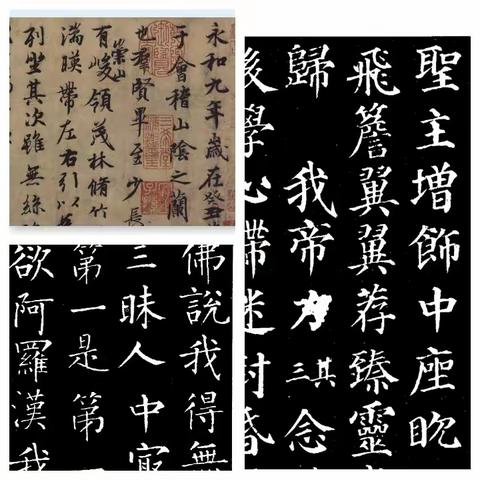 永和九年歲在癸丑
于會稽山陰之蘭
也羣賢畢至少長
崇山
有峻領茂林脩竹
湍暎帶左右引以
列坐其次雖無絲
佛說我得無
三昧人中㝡
第一是第一
欲阿羅漢我
聖主增飾中座眈
飛簷翼翼荐臻靈
歸 我帝力其三念
後學心滯迷封昏